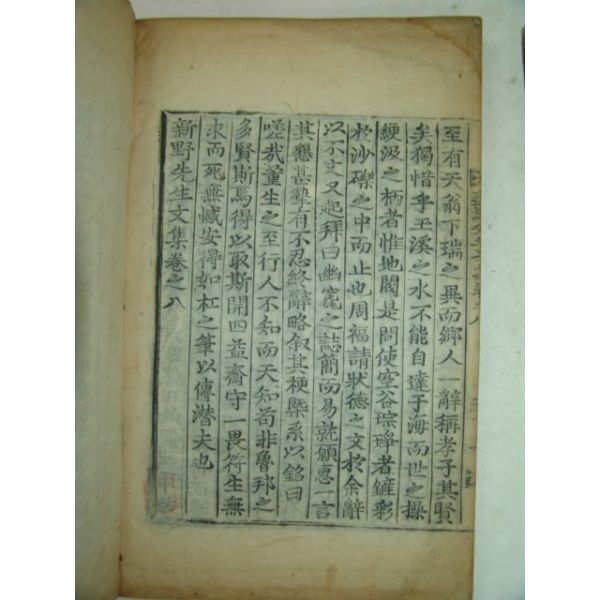 至有天翁下瑞之異而鄉人一辭稱孝子其賢
矣獨惜乎玉溪之水不能自達于海而世之操
綆汲之柄者惟地閥是問使空谷琮琤者鏟彩
於沙礫之中而止也周福請狀德之文於余辭
以不文又起拜曰幽竁之誌簡而易就願惠一言
其懇甚摯有不忍終辭略叙其梗槩系以銘曰
嗟哉董生之至行人不知而天知苟非魯邦之
多賢斯焉得以取斯開四益齋守一畏符生無
求而死無慽安得如杠之筆以傳潛夫也
新野先生文集卷之八